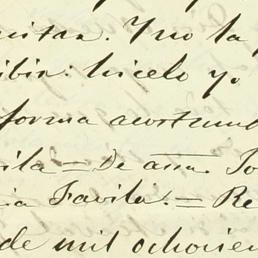 mitan. Y no la
ibir: hicelo yo
forma acostumb
ila = De ana. Jo
ia Favila. = Re
de mil ochocien